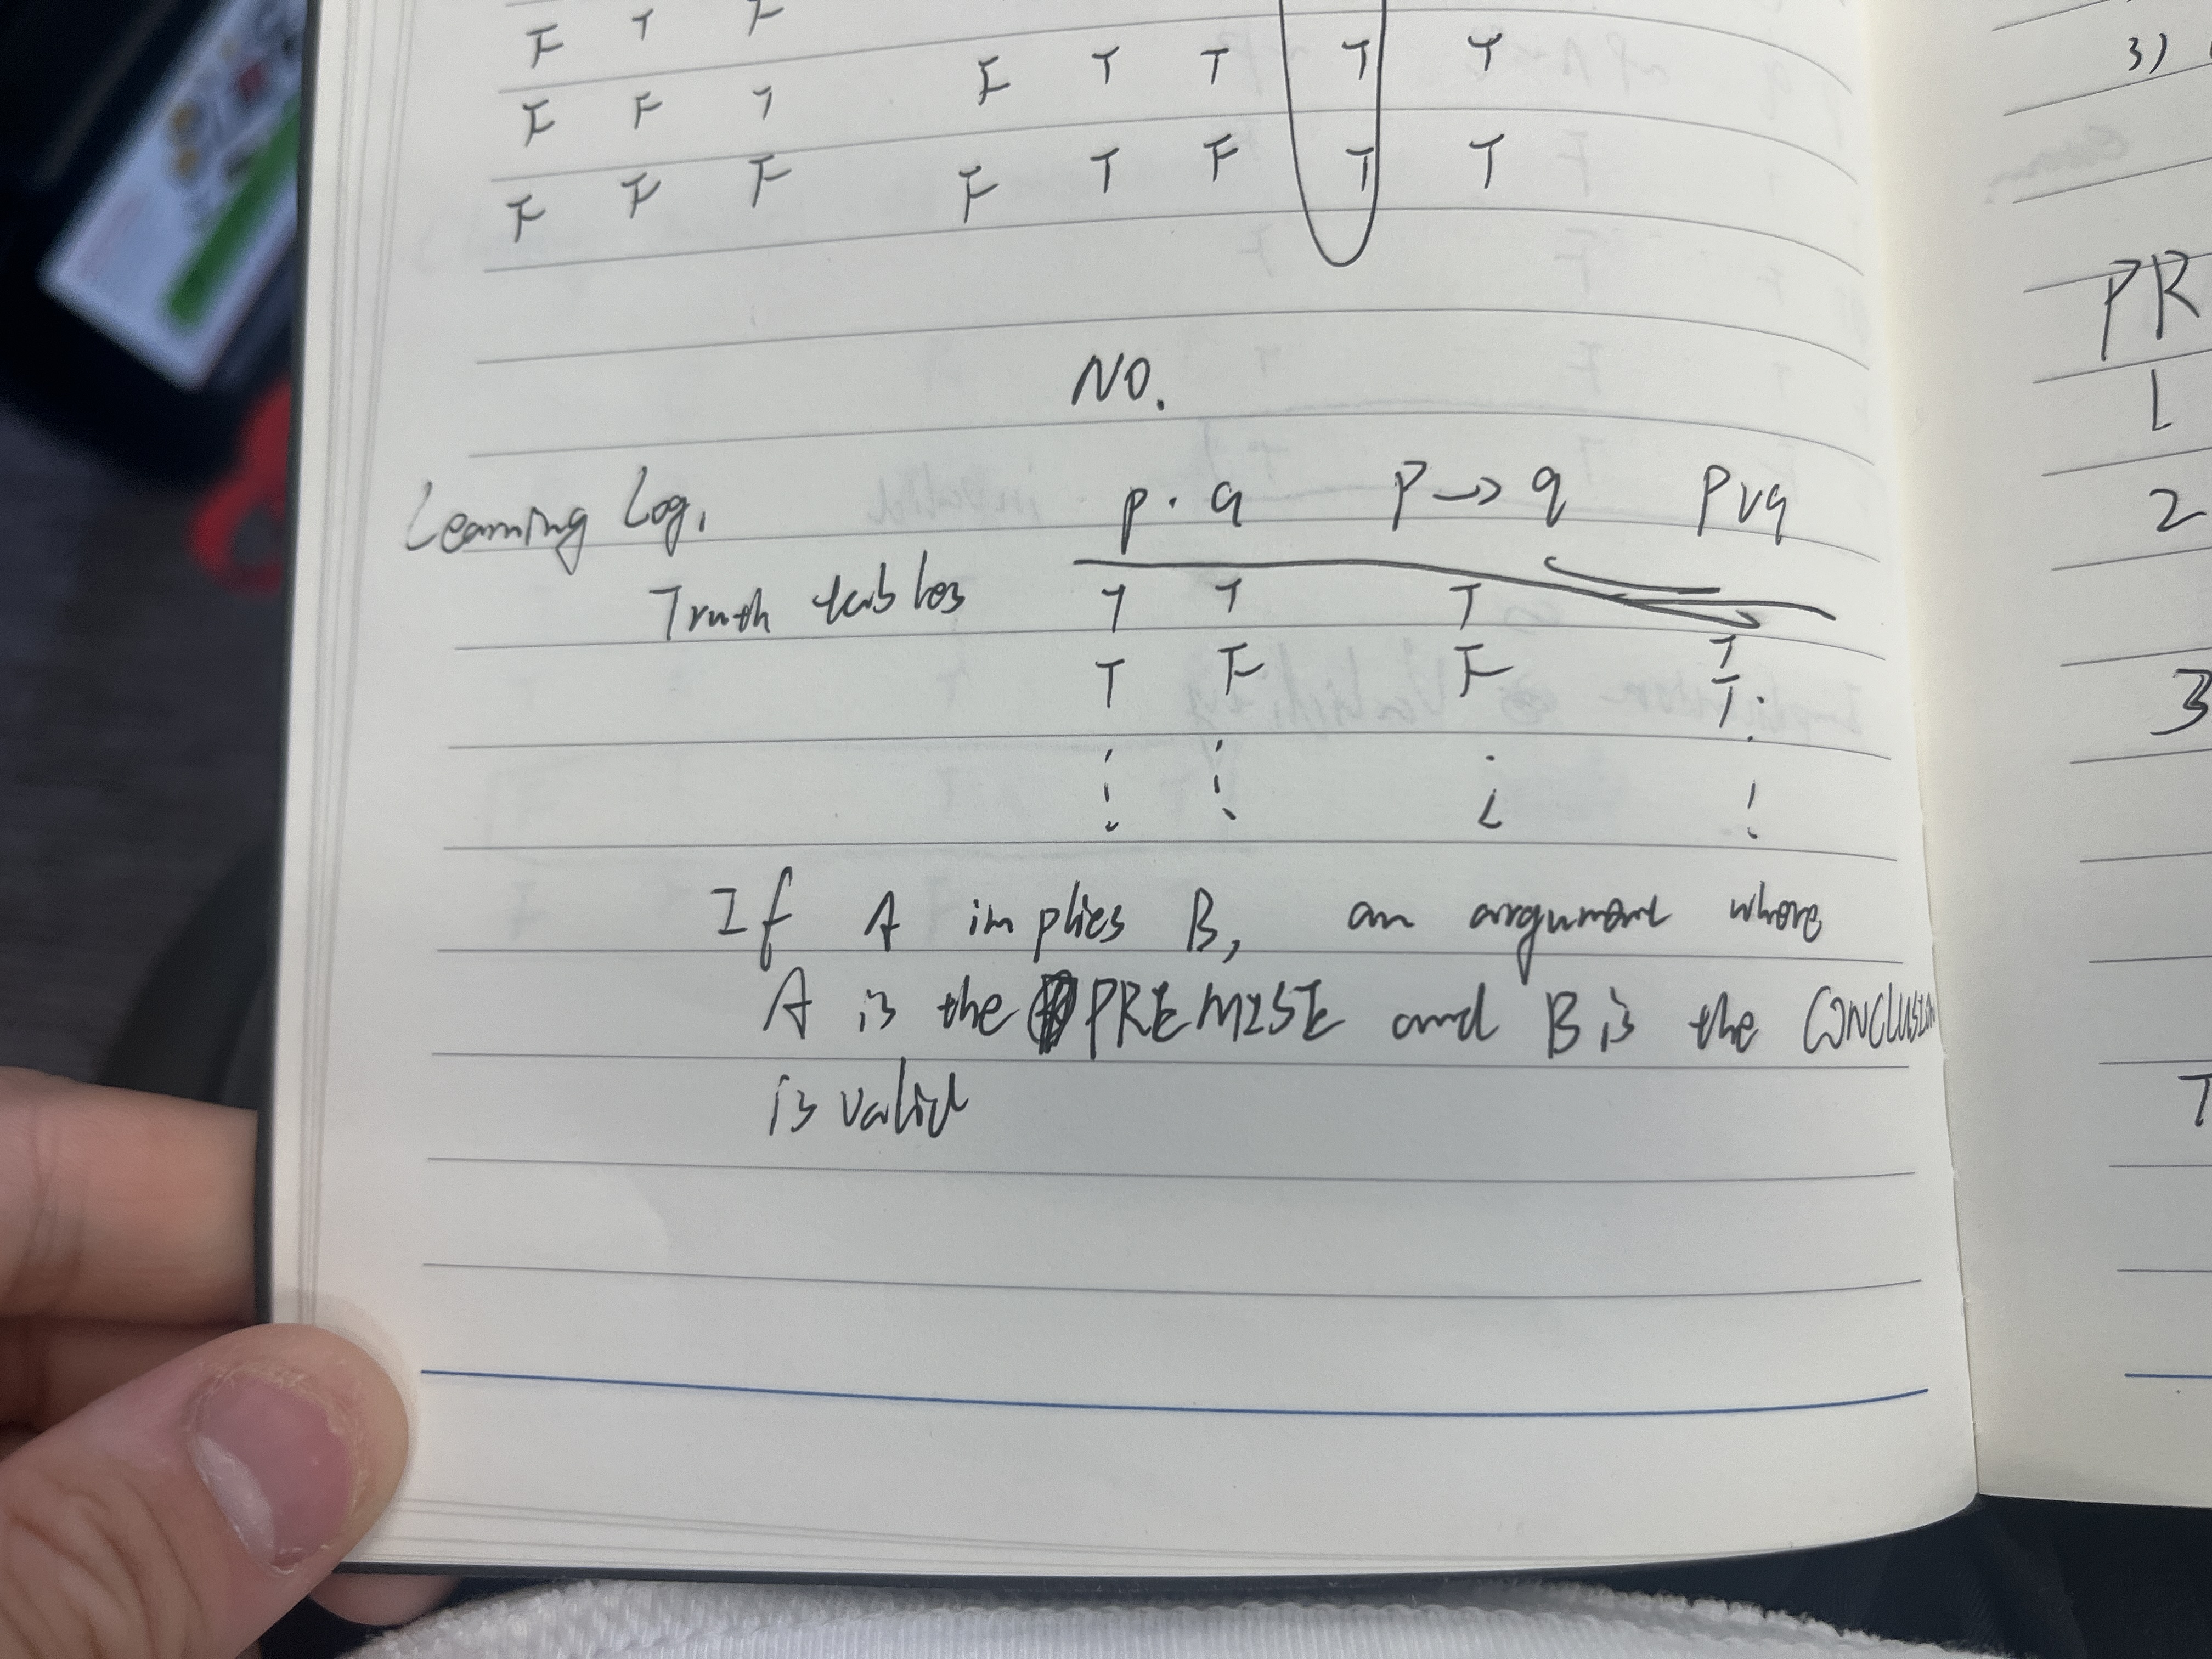 F T F
F F T F T T T T
F F F F T F T T
No.
Learning Log,
p. q p → q p ∨ q
Truth tables T T T T
T F F T
If A implies B, an argument whose
A is the PREMISE and B is the CONCLUSION
is valid
3)
PR
1
2
3
T